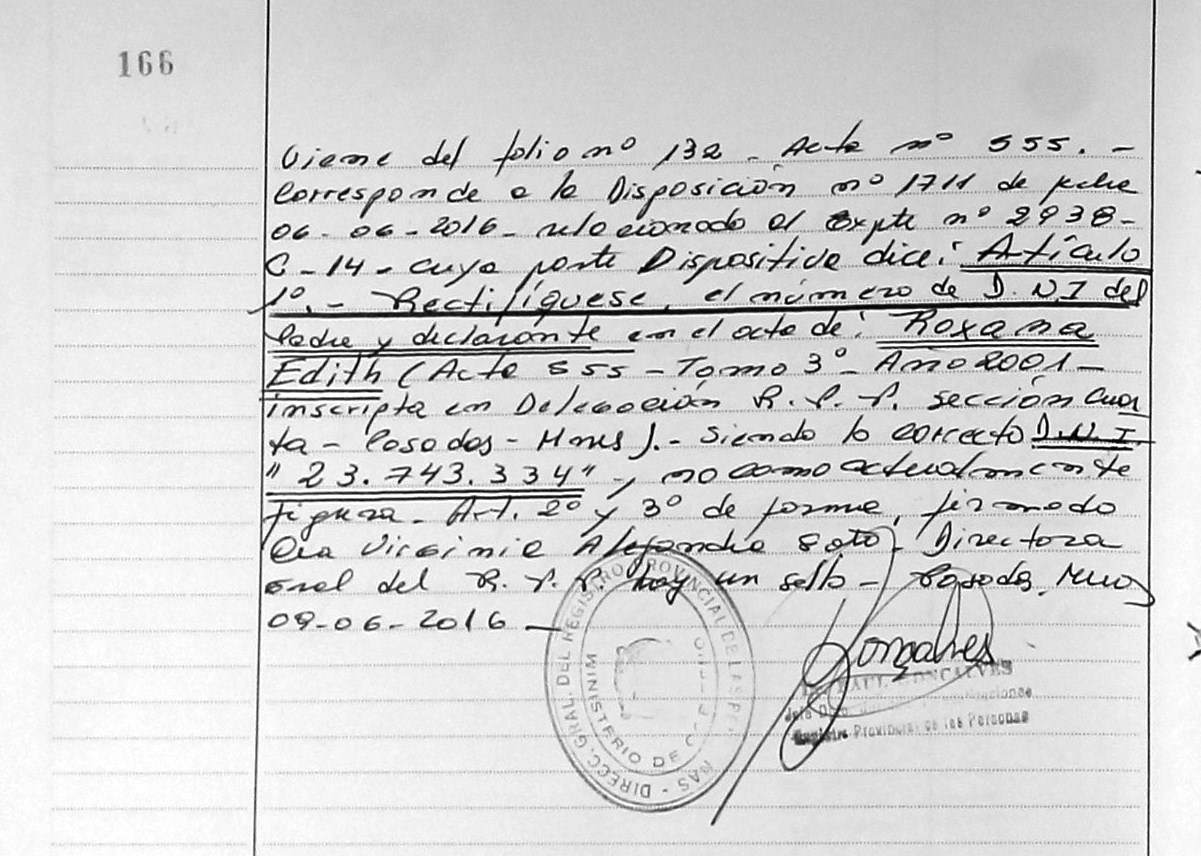 166
Viene del folio nº 132 - Acta nº 555. -
Corresponde a la Disposición nº 1711 de fecha
06-06-2016- relacionado al Expte nº 2938-
C-14- cuya parte Dispositiva dice: Artículo
1º.- Rectifíquese, el número de D.N.I del
Padre y declarante en el acta de: Roxana
Edith (Acta 555 - Tomo 3º - Año 2001 -
inscripta en Delegación R.P.P. sección Cuar
ta - Posadas - Mnes).- Siendo lo correcto D.N.I.
"23.743.334"-, no como actualmente
figura. Art. 2º y 3º de forma, firmado
Dra Virginia Alejandra Soto, Directora
Gral del R.P.P. hay un sello - Posadas, Mnes
09-06-2016 -
DIRECC. GRAL. DEL REGISTRO PROVINCIAL DE LAS PER
NAS
MINISTERIO DE G
Gonçalves
RAUL GONCALVES
Jefe Dpto.
Registro Provincial de las Personas